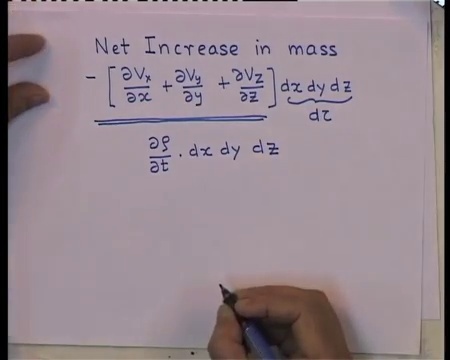 Net Increase in mass
- [ ∂Vx/∂x + ∂Vy/∂y + ∂Vz/∂z ] dx dy dz
dτ
∂ρ/∂t . dx dy dz